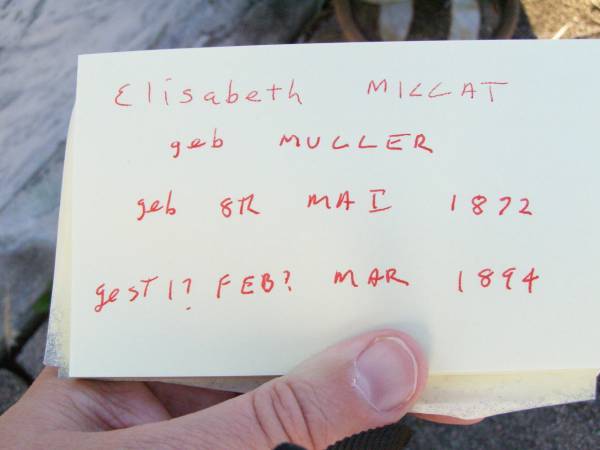 Elisabeth MILLAT
geb MULLER
geb 8TE MAI 1872
gest 1? FEB? MAR 1894